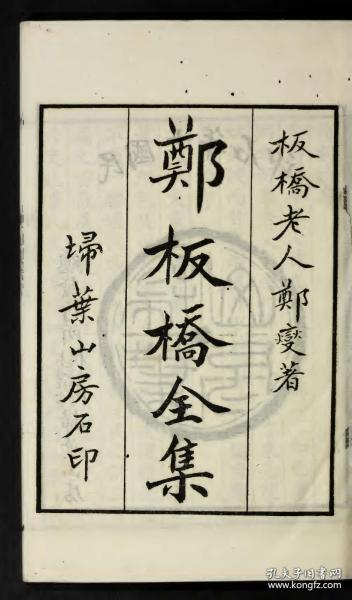 板橋老人鄭燮著
鄭板橋全集
埽葉山房石印
孔夫子旧书网
www.kongfz.com